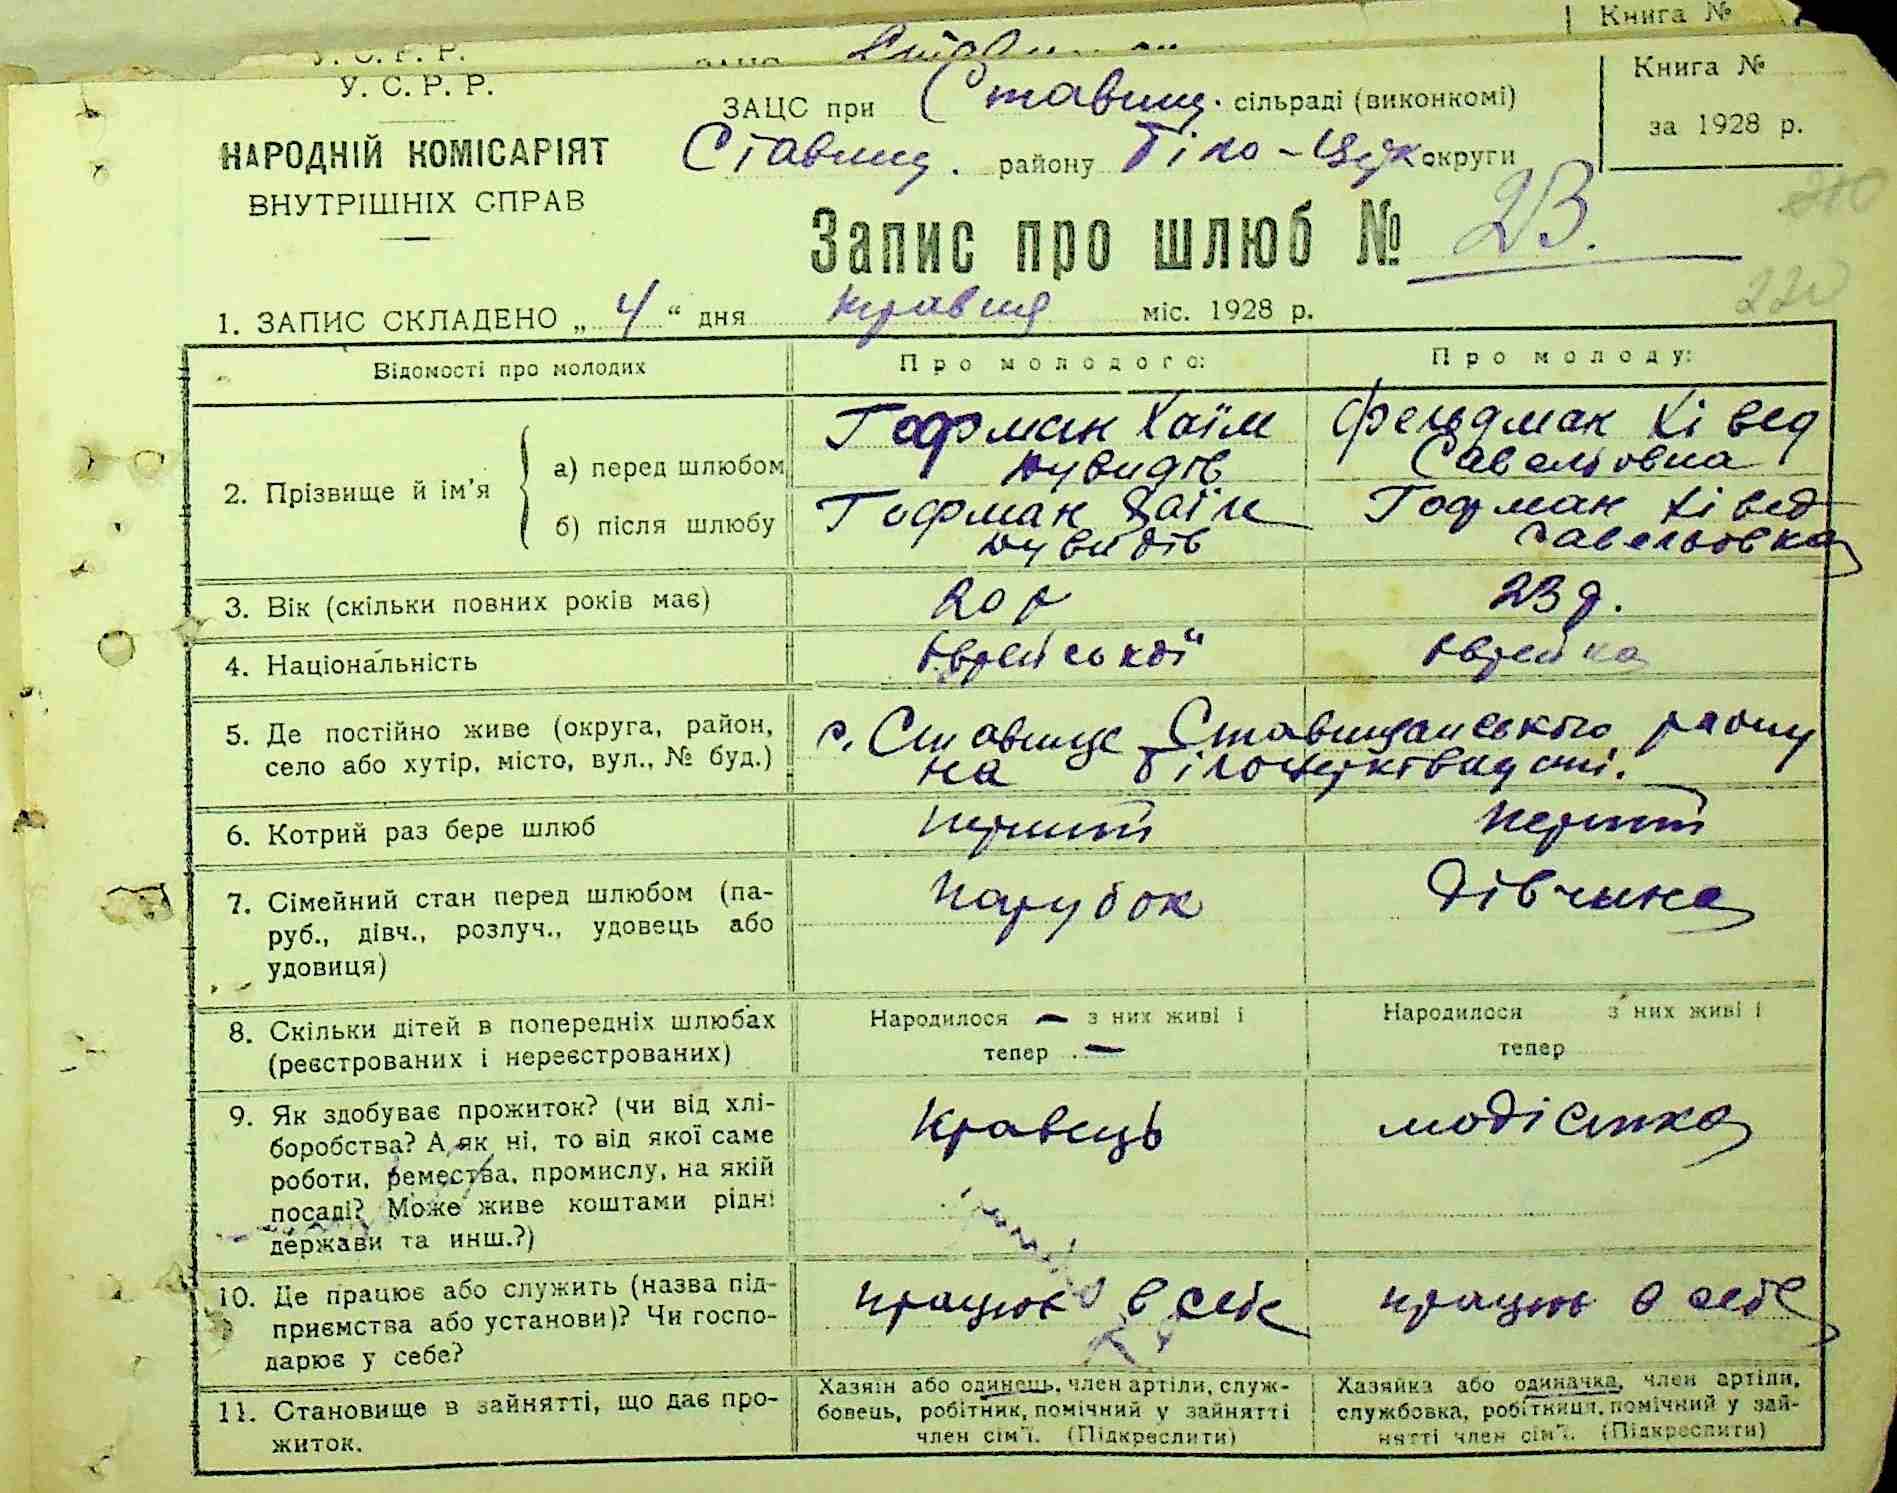 Книга №
У. С. Р. Р.
У. С. Р. Р.
НАРОДНІЙ КОМІСАРІЯТ
ВНУТРІШНІХ СПРАВ
ЗАЦС при Ставищ. сільраді (виконкомі)
Ставищ. району Біло-Церк округи
Книга №
за 1928 р.
Запис про шлюб № 23.
210
220
1. ЗАПИС СКЛАДЕНО „ 4 “ дня травня міс. 1928 р.
Відомості про молодих
Про молодого:
Про молоду:
2. Прізвище й ім'я
а) перед шлюбом
Гофман Хаїм
Дувидів
Фельдман Ківед
Савеліовна
б) після шлюбу
Гофман Хаїм
Дувидів
Гофман Ківед
Савельовна
3. Вік (скільки повних років має)
20 р
23 р.
4. Національність
Єврейської
Єврейка
5. Де постійно живе (округа, район,
село або хутір, місто, вул., № буд.)
с. Ставище Ставищанського району
на Білоцерківщині.
6. Котрий раз бере шлюб
перший
перший
7. Сімейний стан перед шлюбом (па-
руб., дівч., розлуч., удовець або
удовиця)
Парубок
Дівчина
8. Скільки дітей в попередніх шлюбах
(реєстрованих і нереєстрованих)
Народилося — з них живі і
тепер —
Народилося з них живі і
тепер
9. Як здобуває прожиток? (чи від хлі-
боробства? А як ні, то від якої саме
роботи, ремества, промислу, на якій
посаді? Може живе коштами рідні
держави та инш.?)
Кравець
модістка
10. Де працює або служить (назва під-
приємства або установи)? Чи госпо-
дарює у себе?
працює в себе
працює в себе
11. Становище в зайнятті, що дає про-
житок.
Хазяїн або одинець, член артіли, служ-
бовець, робітник, помічний у зайнятті
член сім'ї. (Підкреслити)
Хазяйка або одиначка, член артіли,
службовка, робітниця, помічний у зай-
нятті член сім'ї. (Підкреслити)